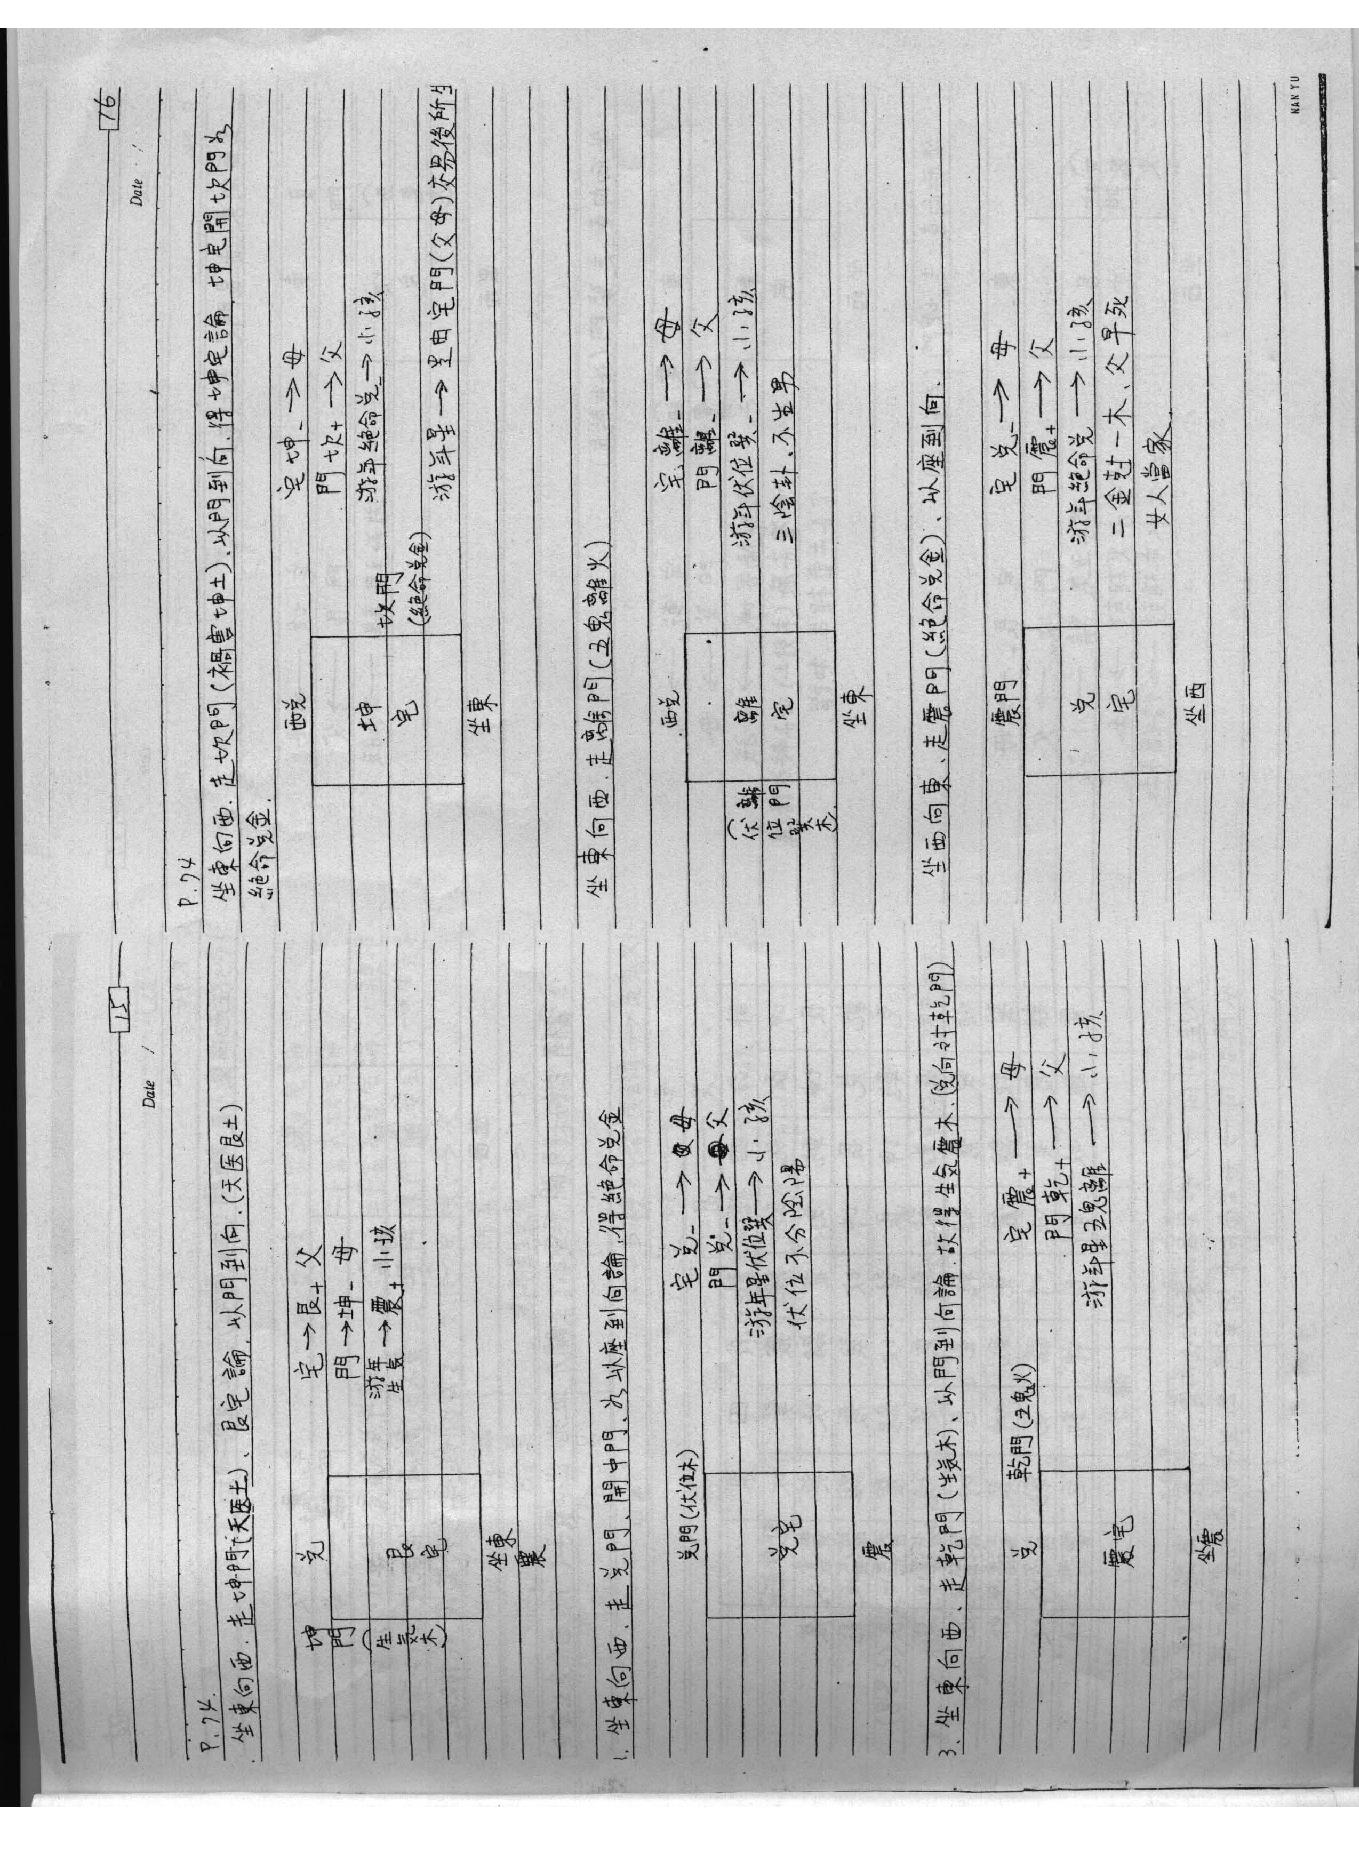 15
Date /
P.74.
坐東向西．走坤門(天医土)、艮宅論，以門到向．(天医艮土)
兌
宅→艮+ 父
坤門(生氣木)
門→坤- 母
游年生氣→震+ 小孩
艮宅
坐東
震
1. 坐東向西．走兌門、開中門、為以座到向論，得絕命兌金
兌門(伏位木)
宅兌- → 母
門兌- → 父
游年星伏位巽→小孩
伏位不分陰陽
兌宅
震
3、坐東向西、走乾門(生氣木)、以門到向論．故得生氣震木．(兌向對乾門)
兌
乾門(五鬼火)
宅震+ → 母
門乾+ → 父
游年星五鬼離 → 小孩
震宅
坐震
16
Date /
P.74
坐東向西．走坎門(禍害坤土)．以門到向．得坤宅論，坤宅開坎門為
絕命兌金．
西兌
宅坤- → 母
門坎+ → 父
坤宅
坎門
(絕命兌金)
游年絕命兌-→小孩
游年星→是由宅門(父母)交易後所生
坐東
坐東向西．走離門(五鬼離火)
西兌
宅離- → 母
門離- → 父
離宅
離門
(伏位巽木)
游年伏位巽- → 小孩
三陰卦、不生男
坐東
坐西向東、走震門(絕命兌金)、以座到向．
震門
宅兌- → 母
門震+ → 父
兌宅
游年絕命兌 → 小孩
二金尅一木、父早死
女人當家．
坐西
NAN YU